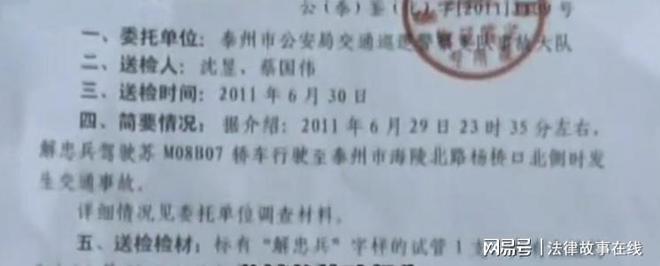 公(泰)鉴(化)字[2011]
号
一、委托单位：泰州市公安局交通巡逻警察支队事故大队
二、送检人：沈昱、蔡国伟
三、送检时间：2011 年 6 月 30 日
四、简要情况：据介绍：2011 年 6 月 29 日 23 时 35 分左右，
解忠兵驾驶苏 M08B07 轿车行驶至泰州市海陵北路杨桥口北侧时发
生交通事故。
详细情况见委托单位调查材料。
五、送检检材：标有“解忠兵”字样的试管 1 支
网易号 法律故事在线